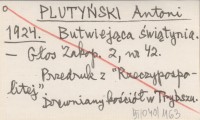 PLUTYŃSKI Antoni
1924. Butwiejąca świątynia.
— Głos Zakop. 2, nr 42.
Przedruk z "Rzeczypospo-
litej".
Drewniany kościół w Trybszu.